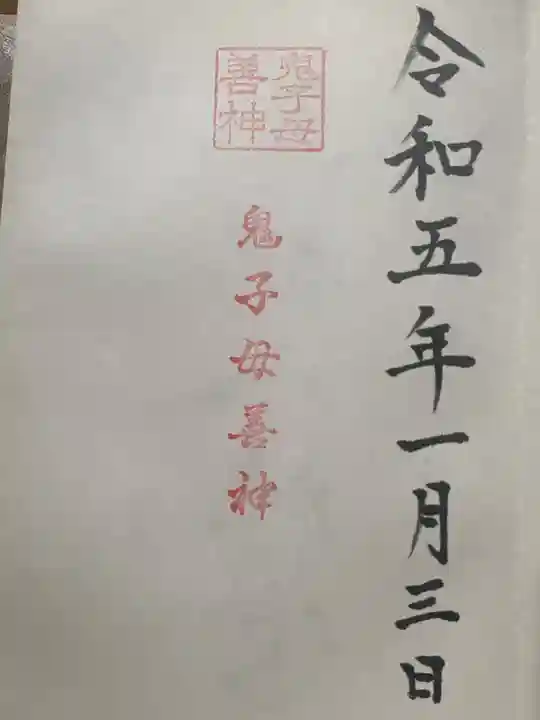 令和五年一月三日
鬼子母
善神
鬼子母善神